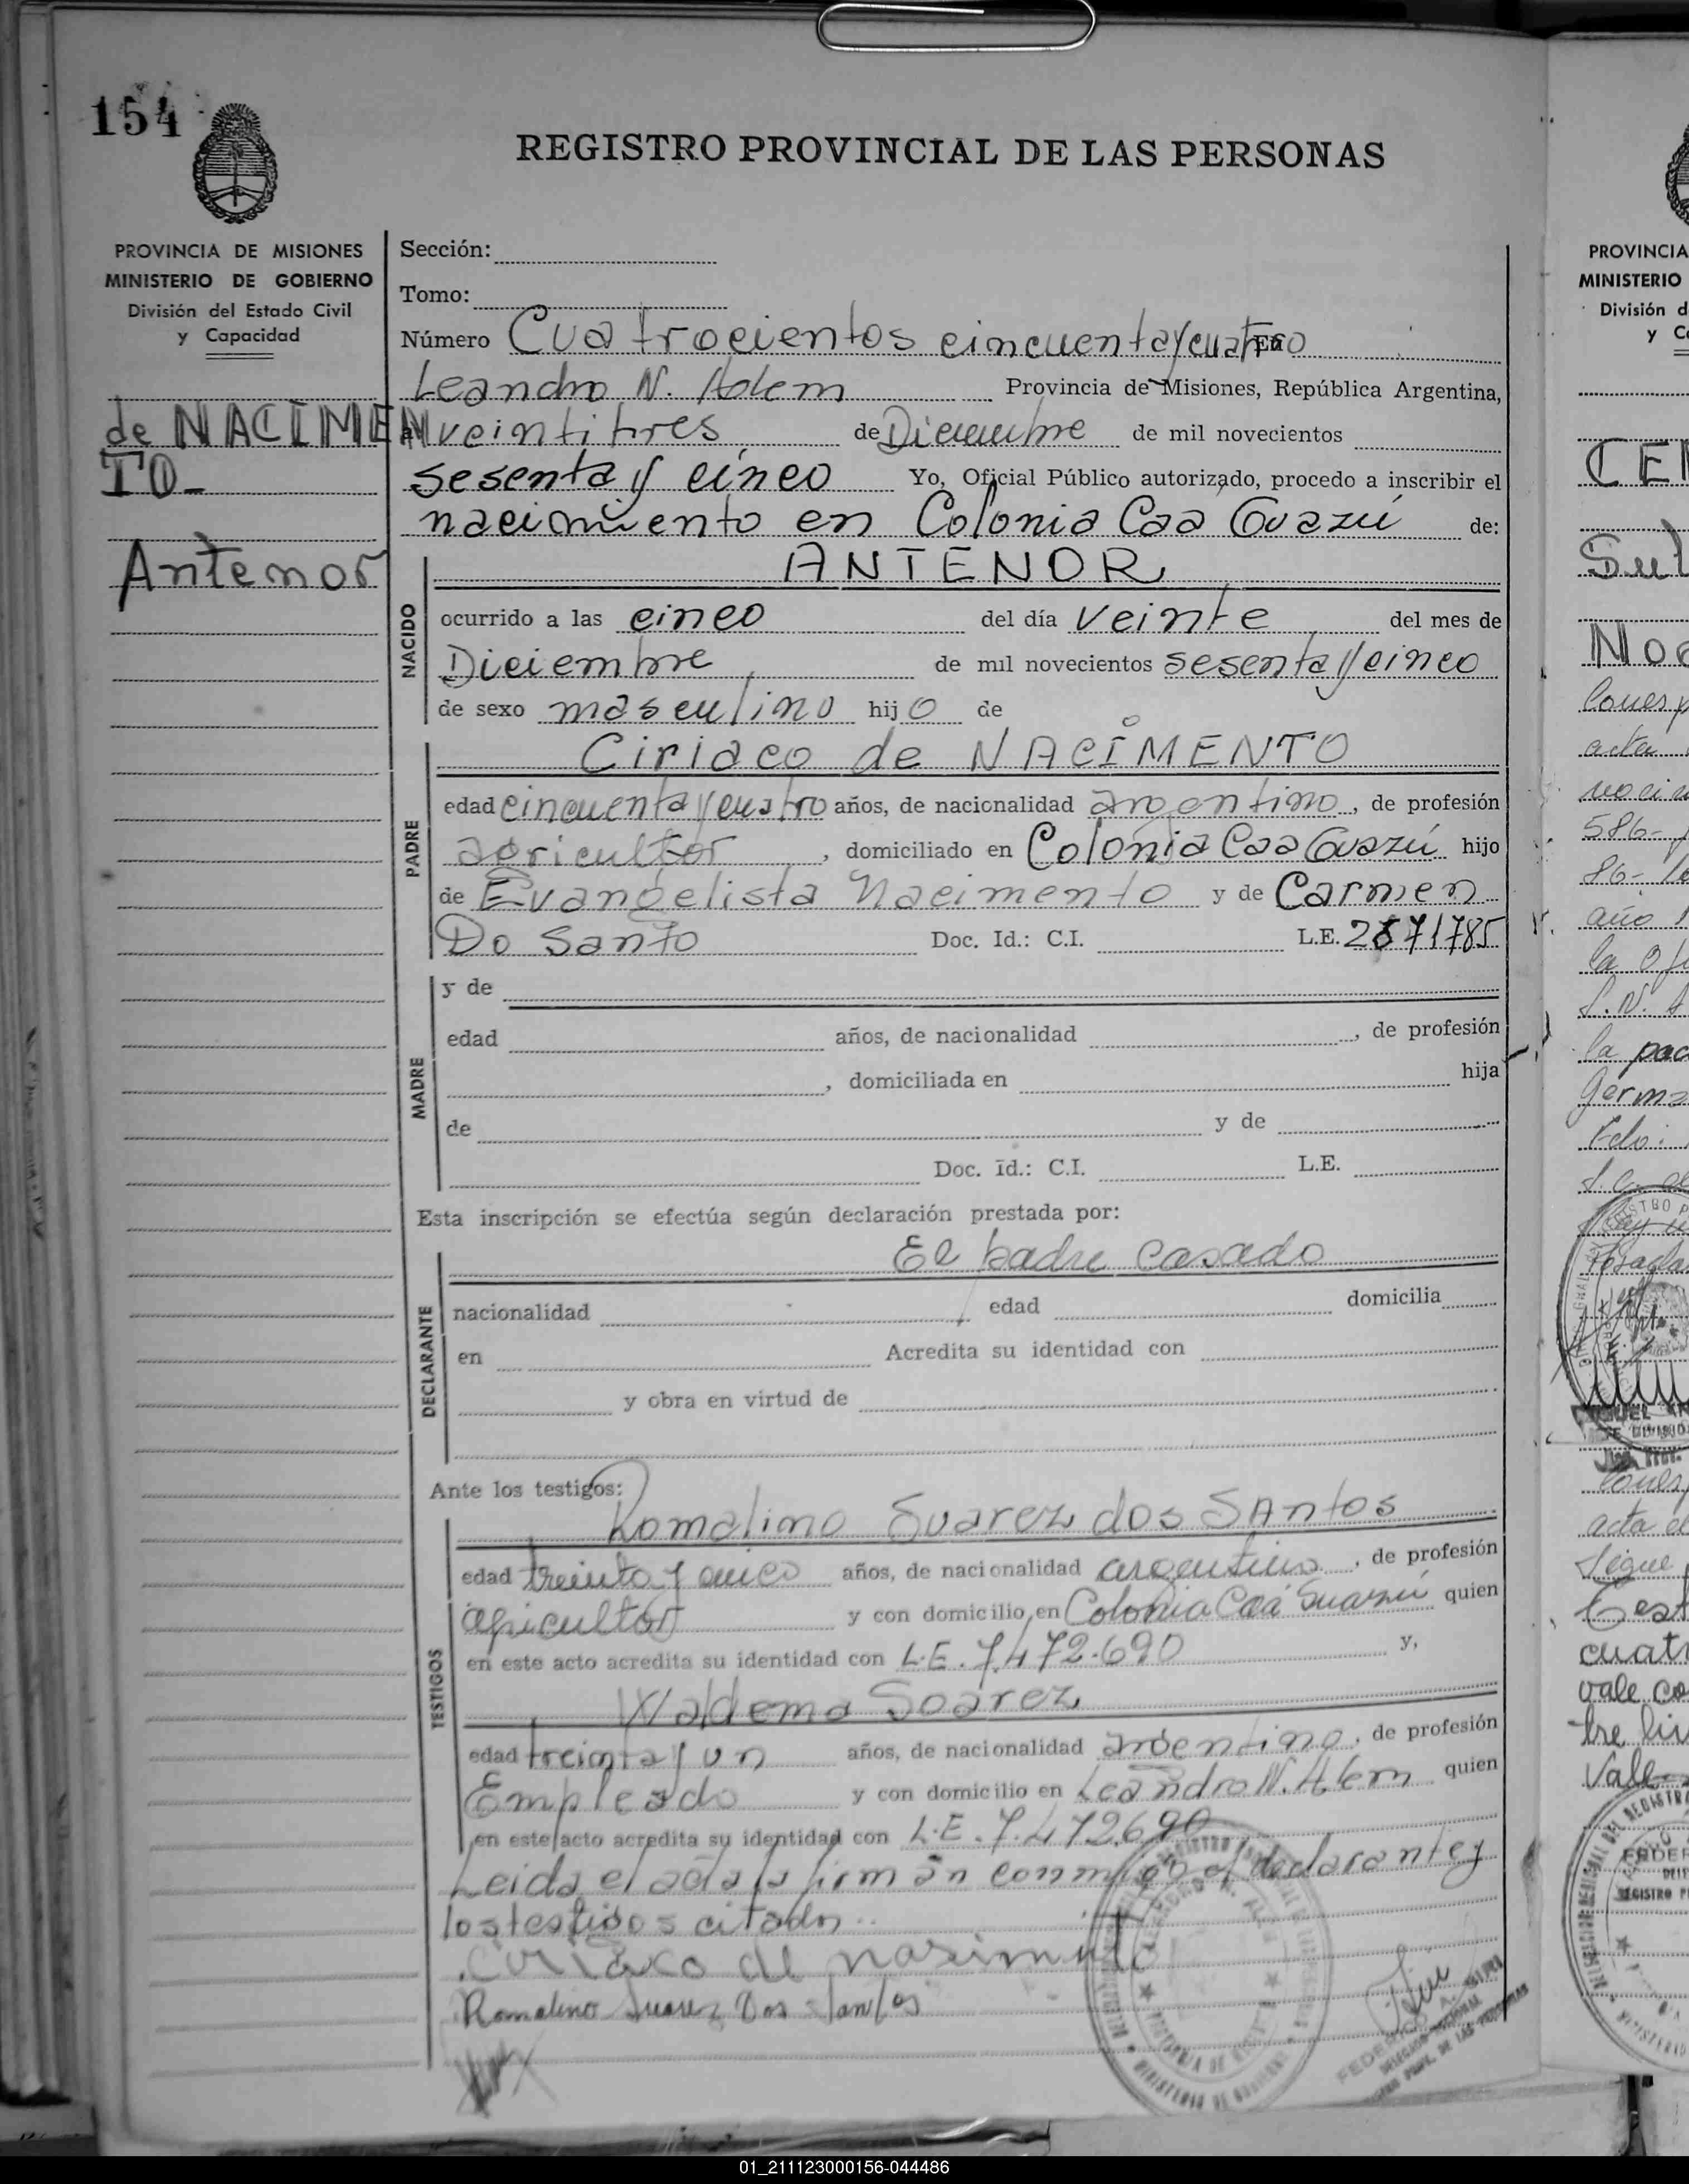 154
REGISTRO PROVINCIAL DE LAS PERSONAS
PROVINCIA DE MISIONES
MINISTERIO DE GOBIERNO
División del Estado Civil
y Capacidad
de NACIMEN
TO-
Antenor
Sección:
Tomo:
Número Cuatrocientos cincuenta y cuatro En
Leandro N. Alem Provincia de Misiones, República Argentina,
a veintitres de Diciembre de mil novecientos
sesenta y cinco Yo, Oficial Público autorizado, procedo a inscribir el
nacimiento en Colonia Caa Guazú de:
NACIDO
ANTENOR
ocurrido a las cinco del día veinte del mes de
Diciembre de mil novecientos sesenta y cinco
de sexo masculino hijo de
PADRE
Ciriaco de NACIMENTO
edad cincuenta y cuatro años, de nacionalidad argentino, de profesión
agricultor, domiciliado en Colonia Caa Guazú hijo
de Evangelista Nacimento y de Carmen
Do Santo Doc. Id.: C.I. L.E. 2671785
MADRE
y de
edad años, de nacionalidad , de profesión
, domiciliada en hija
de y de
Doc. id.: C.I. L.E.
Esta inscripción se efectúa según declaración prestada por:
DECLARANTE
El padre casado
nacionalidad edad domicilia
en Acredita su identidad con
y obra en virtud de
Ante los testigos:
TESTIGOS
Romalino Suarez dos SAntos
edad treinta y cinco años, de nacionalidad argentino, de profesión
agricultor y con domicilio en Colonia Caá Guazú quien
en este acto acredita su identidad con L.E. 7.472.690 y,
Waldema Soarez
edad treinta y un años, de nacionalidad argentino, de profesión
Empleado y con domicilio en Leandro N. Alem quien
en este acto acredita su identidad con L.E. 7.472690
Leida el acta la firman conmigo el declarante y
los testigos citados..
Ciriaco de nasimento
Romalino Suarez Dos Santos
PROVINCIA
MINISTERIO
División d
y Ca
01_211123000156-044486